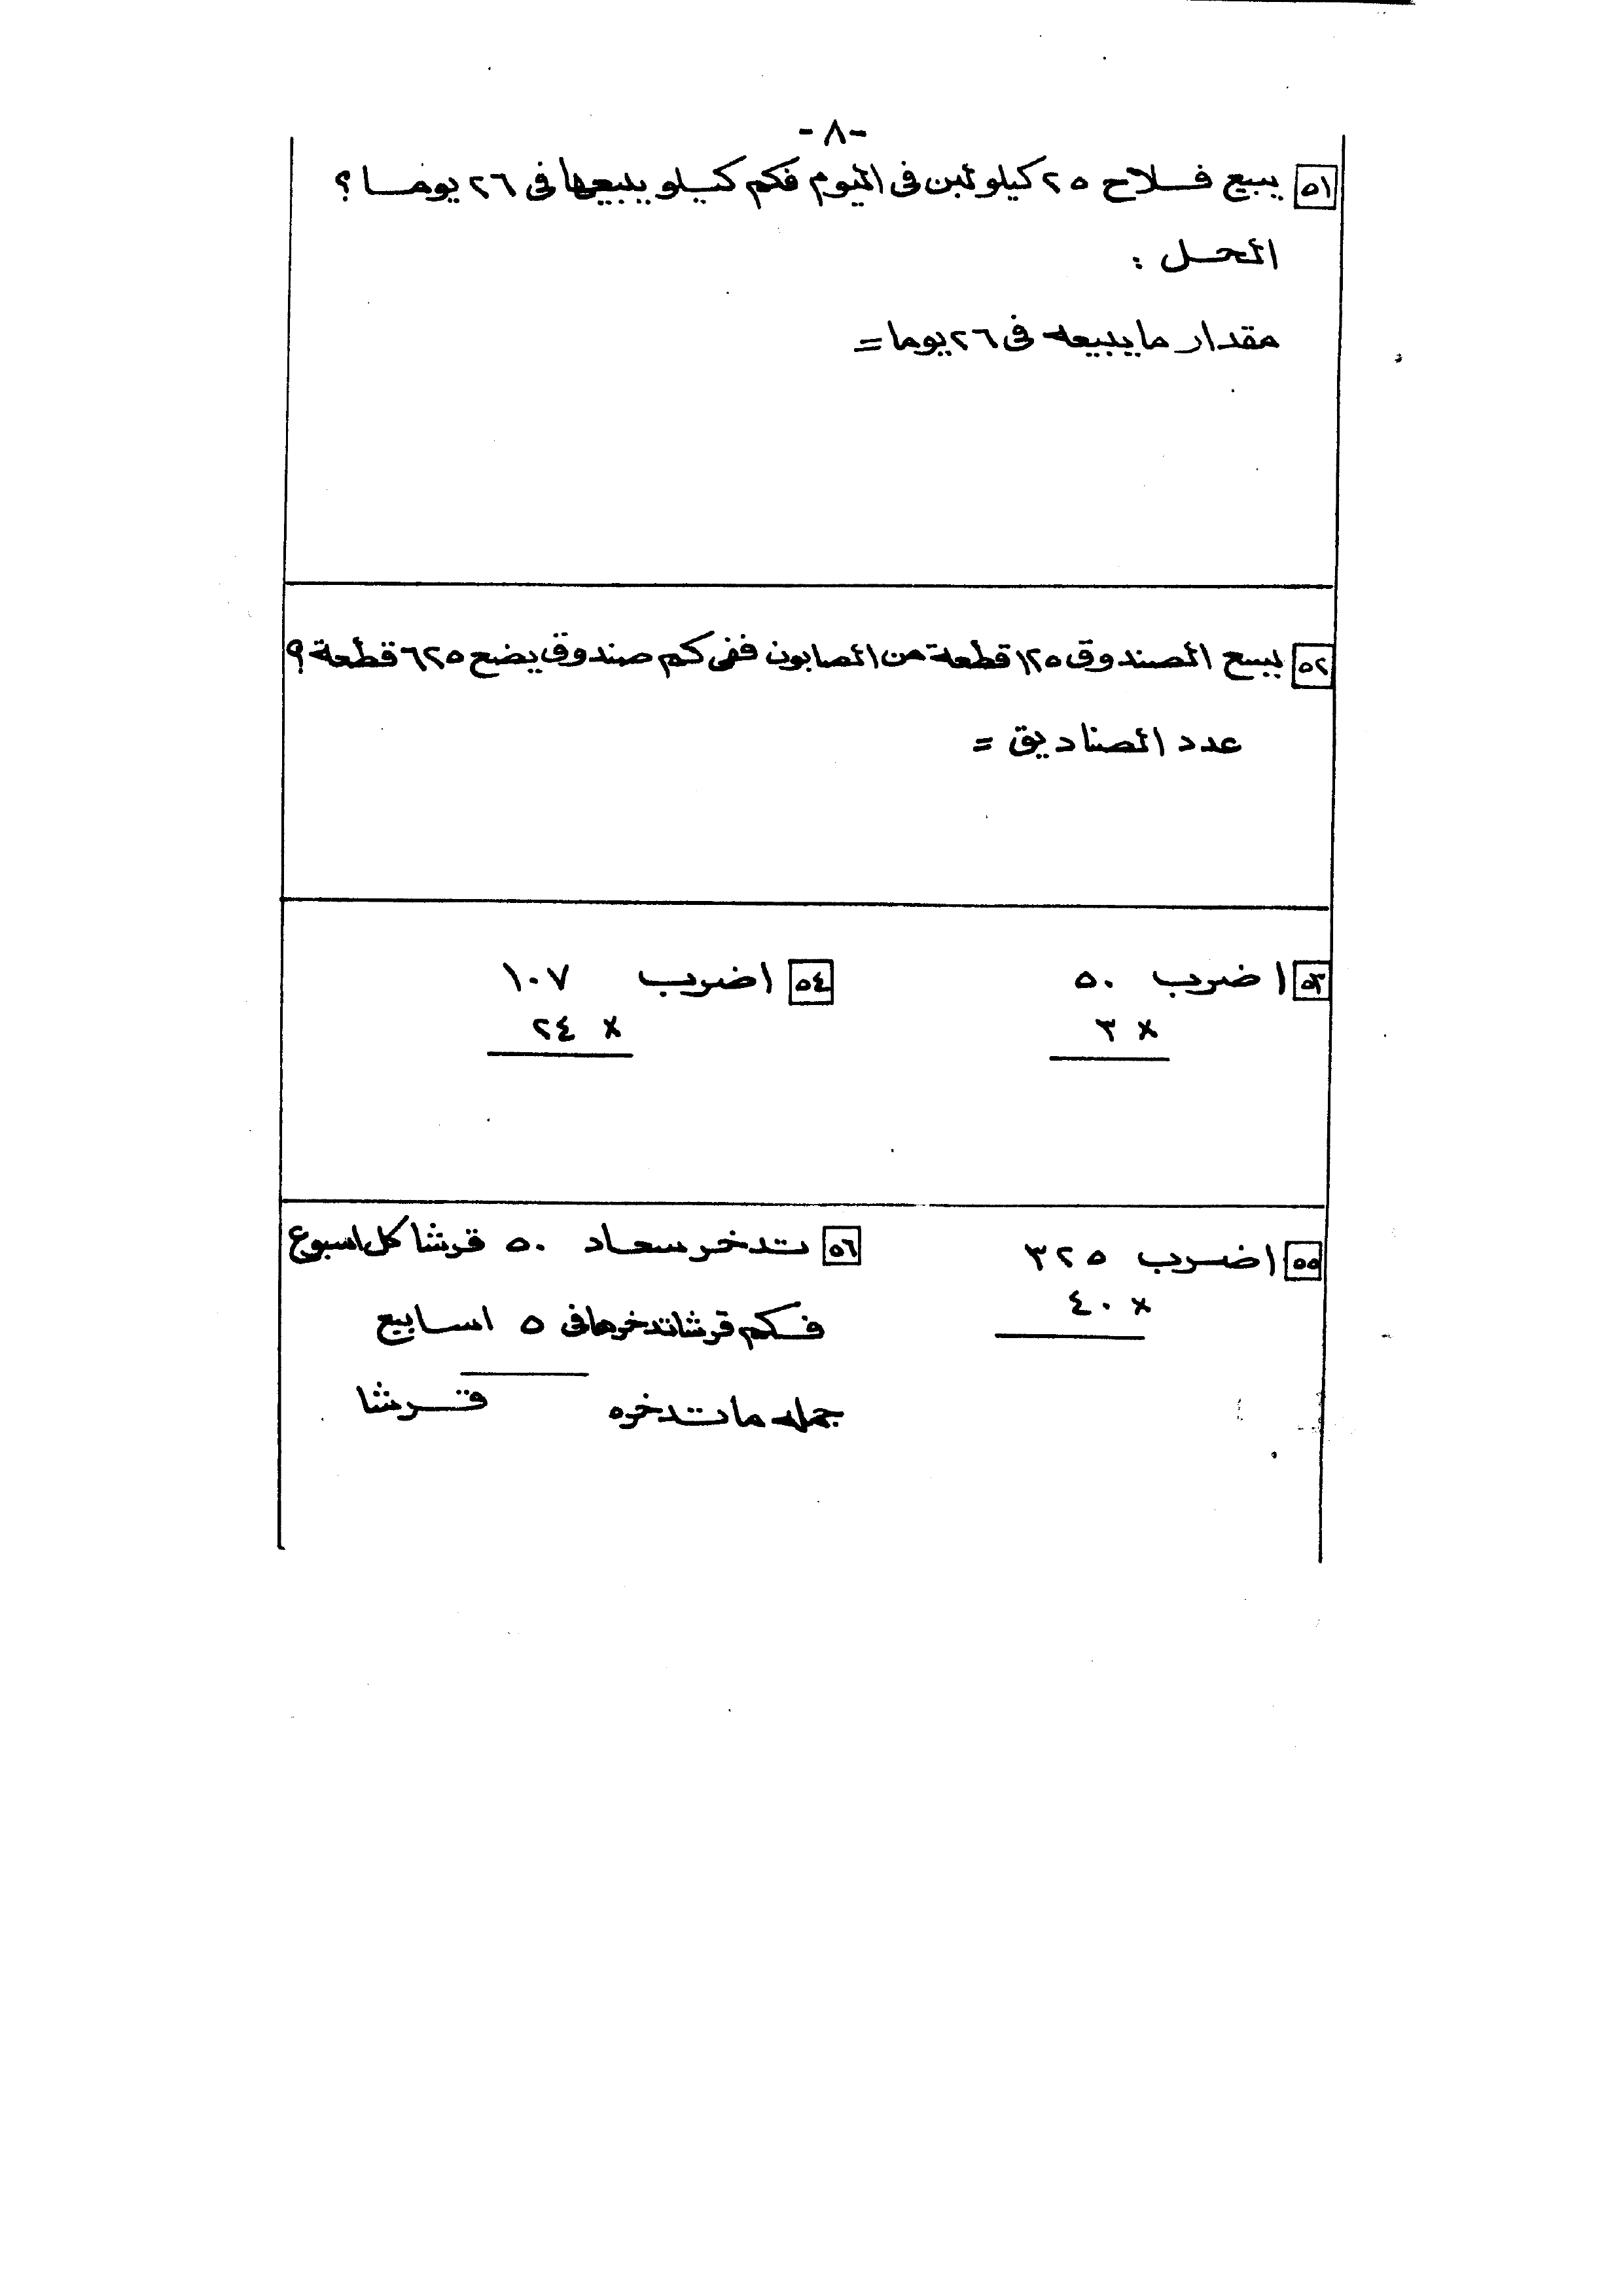 -٨-
٥١ يبيع فلاح ٢٥ كيلو لبن فى اليوم فكم كيلو يبيعها فى ٢٦ يوما ؟
الحل :
مقدار ما يبيعه فى ٢٦ يوما =
٥٢ يسع الصندوق ١٢٥ قطعة من الصابون ففى كم صندوق يضع ٦٢٥ قطعة ؟
عدد الصناديق =
٥٣ اضرب ٥٠
× ٣
٥٤ اضرب ١٠٧
× ٢٤
٥٥ اضرب ٣٢٥
× ٤٠
٥٦ تدخر سعاد ٥٠ قرشا كل اسبوع
فكم قرشا تدخرها فى ٥ اسابيع
جمله ما تدخره ـــــ قرشا